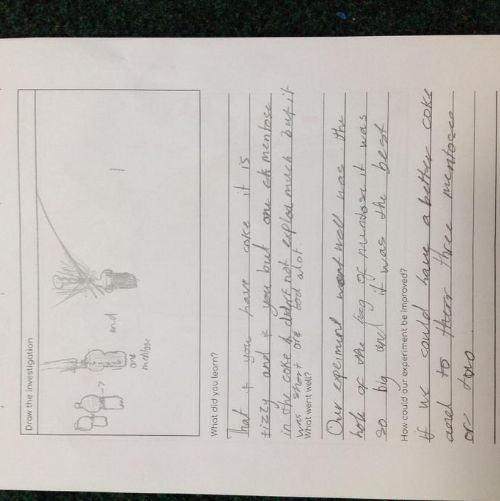 Draw the investigation
and
one
mentose
What did you learn?
That if you have coke it is
fizzy and if you but one mentose
in the coke it didn't not explou much but it
was short are bod alot.
What went well?
Our experiment went well was the
hole of the bag of mentose it was
so big and it was the best
How could our experiment be improved?
If we could have a better coke
and to there three mentoses
or two